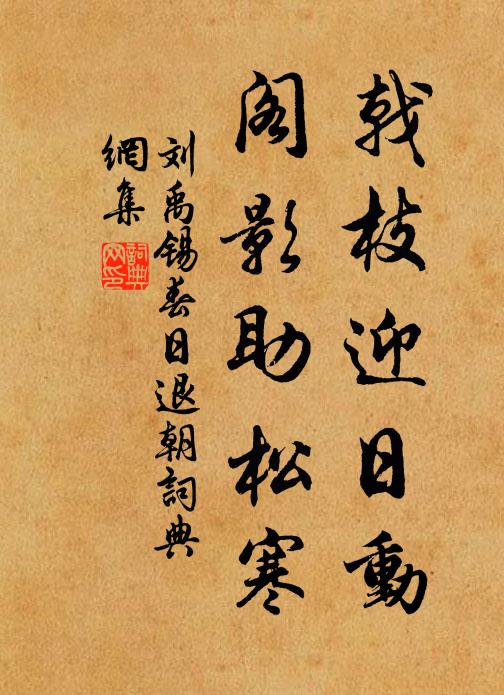 戟枝迎日動
阁影助松寒
刘禹锡春日退朝詞典
網集
詞典
网印